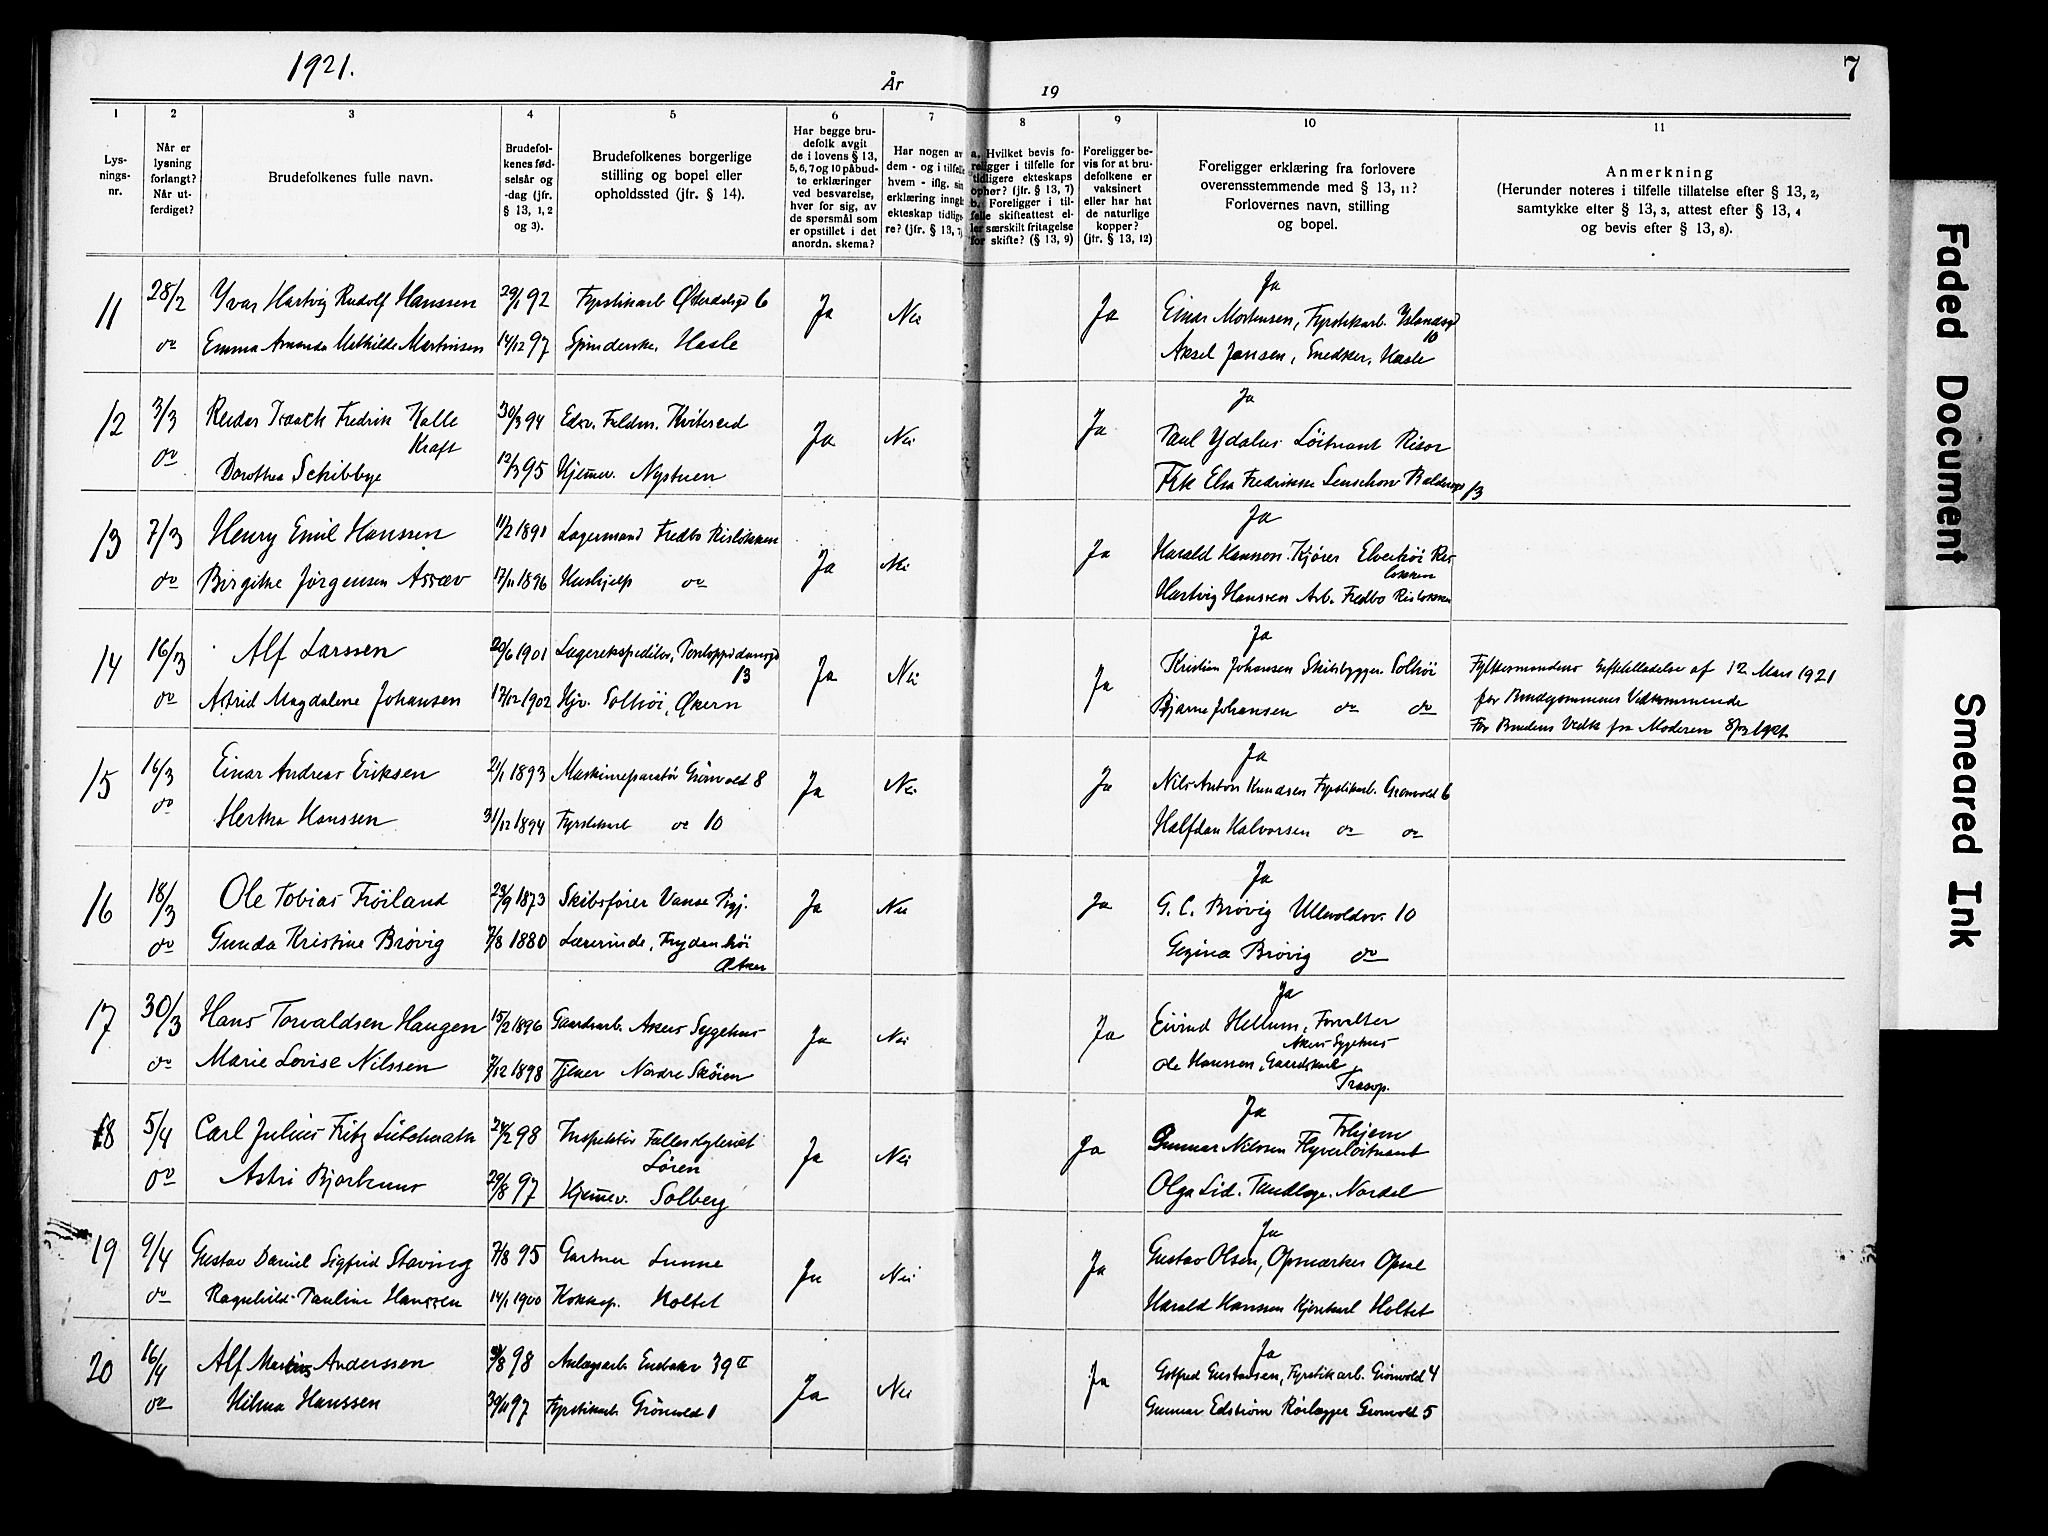 1921.
År
19
7
1
2
3
4
5
6
7
8
9
10
11
Lys-
nings-
nr.
Når er
lysning
forlangt?
Når ut-
ferdiget?
Brudefolkenes fulle navn.
Brudefol-
kenes fød-
selsår og
-dag (jfr.
§ 13, 1, 2
og 3).
Brudefolkenes borgerlige
stilling og bopel eller
opholdssted (jfr. § 14).
Har begge bru-
defolk avgit
de i lovens § 13,
5, 6, 7 og 10 påbud-
te erklæringer
ved besvarelse,
hver for sig, av
de spørsmål som
er opstillet i det
anordn. skema?
Har nogen av
dem - og i tilfelle
hvem - iflg. sin
erklæring inngk
ekteskap tidlige-
re? (jfr. § 13, 7)
a. Hvilket bevis fo-
religger i tilfelle for
tidligere ekteskaps
ophør? (jfr. § 13, 7)
b. Foreligger i til-
felle skifteattest el-
ler særskilt fritagelse
for skifte? (§ 13, 9)
Foreligger be-
vis for at bru-
defolkene er
vaksinert
eller har hat
de naturlige
kopper?
(jfr. § 13, 12)
Foreligger erklæring fra forlovere
overensstemmende med § 13, 11?
Forlovernes navn, stilling
og bopel.
Anmerkning
(Herunder noteres i tilfelle tillatelse efter § 13, 2,
samtykke efter § 13, 3, attest efter § 13, 4
og bevis efter § 13, 8).
11 28/2 Yvar Hartvig Rudolf Hanssen 29/1 92 Fyrstikarb Østerdalsgd 6 Ja Nei Ja Ja
Einar Mortensen, Fyrstikarb. Islandsgd
10
do Emma Amanda Mathilde Martinsen 14/12 97 Spinderske Hasle
Aksel Jansen, Snedker, Hasle
12 3/3 Reidar Isaack Fredrik Kalle 30/3 94 Ja Nei Ja Ja
Kraft
Kviteseid
Paul Ydalus Löitnant Risør
do Dorothea Schibbye 12/3 95 Hjemmev. Nystuen
Frk Elsa Fredrikke Lenschow Baldersgd 13
13 7/3 Henry Emil Hanssen 11/2 1891 Lagermand Fredbo Risløkken Ja Nei Ja Ja
Harald Hanssen Kjører Elverhöi Ris-
løkken
do Birgithe Jørgensen Assæv 17/11 1896 Hushjelp do
Hartvig Hanssen Arb. Fredbo Risløkken
14 16/3 Alf Larssen 20/6 1901 Lagerekspeditør, Pontoppidansgd Ja Nei Ja Ja
13
Kristian Johansen Skibsbygger Solhöi
Fylkesmandens tilladelse af 12 Mars 1921
for Brudgommens Vedkommende
do Astrid Magdalene Johansen 17/12 1902 Hjv. Solhöi, Økern
Bjarne Johansen do do
For Brudens Vedk fra Moderen 8/3 1921
15 16/3 Einar Andreas Eriksen 21/1 1893 Maskinreparatör Grönvold 8 Ja Nei Ja Ja
Nils Anton Knudsen Fyrstikarb. Grønvold 6
do Hertha Hanssen 31/12 1894 Fyrstikarb do 10
Halfdan Halvorsen do do
16 18/3 Ole Tobias Fröiland 29/9 1873 Skibsfører Vanse Ja Nei Ja Ja
G. C. Brøvig Ullevoldsv. 10
do Gunda Kristine Brövig 7/8 1880 Lærerinde, Frydenhöi
Ø Aker
Gezina Brövig do
17 30/3 Hans Torvaldsen Haugen 15/2 1896 Gaardsarb. Akers Sygehus Ja Nei Ja Ja
Eivind Hellum, Forvalter
Akers Sygehus
do Marie Lovise Nilssen 7/12 1898 Tjener Nordre Sköien
Ole Hanssen, Gaardskarl
Trasop.
18 5/4 Carl Julius Fritz Lütcherath 24/2 98 Inspektör Fællesskyteriet Ja Nei Ja Ja
Lören
Gunnar Nilssen Flyverlöitnant
do Astri Bjørknes 29/8 97 Hjemmev. Solberg
Olga Lid. Tandlæge. Nordal
19 9/4 Gustav Daniel Sigfrid Staving 7/8 95 Gartner Lunne Ja Nei Ja Ja
Gustav Olsen, Opmærker Opsal
do Ragnhild Pauline Hanssen 14/1 1900 Kokkep. Holtet
Harald Hanssen Kjørekarl Holtet
20 16/4 Alf Marius Anderssen 98 Anlægsarb Enebakv 39 II Ja Nei Ja Ja
Gotfred Gustavsen, Fyrstikarb. Grönvold 4
do Hilma Hanssen 30/11 97 Fyrstikarb Grönvold 1
Gunnar Edström Rørlægger Grønvold 5
Faded Document
Smeared Ink